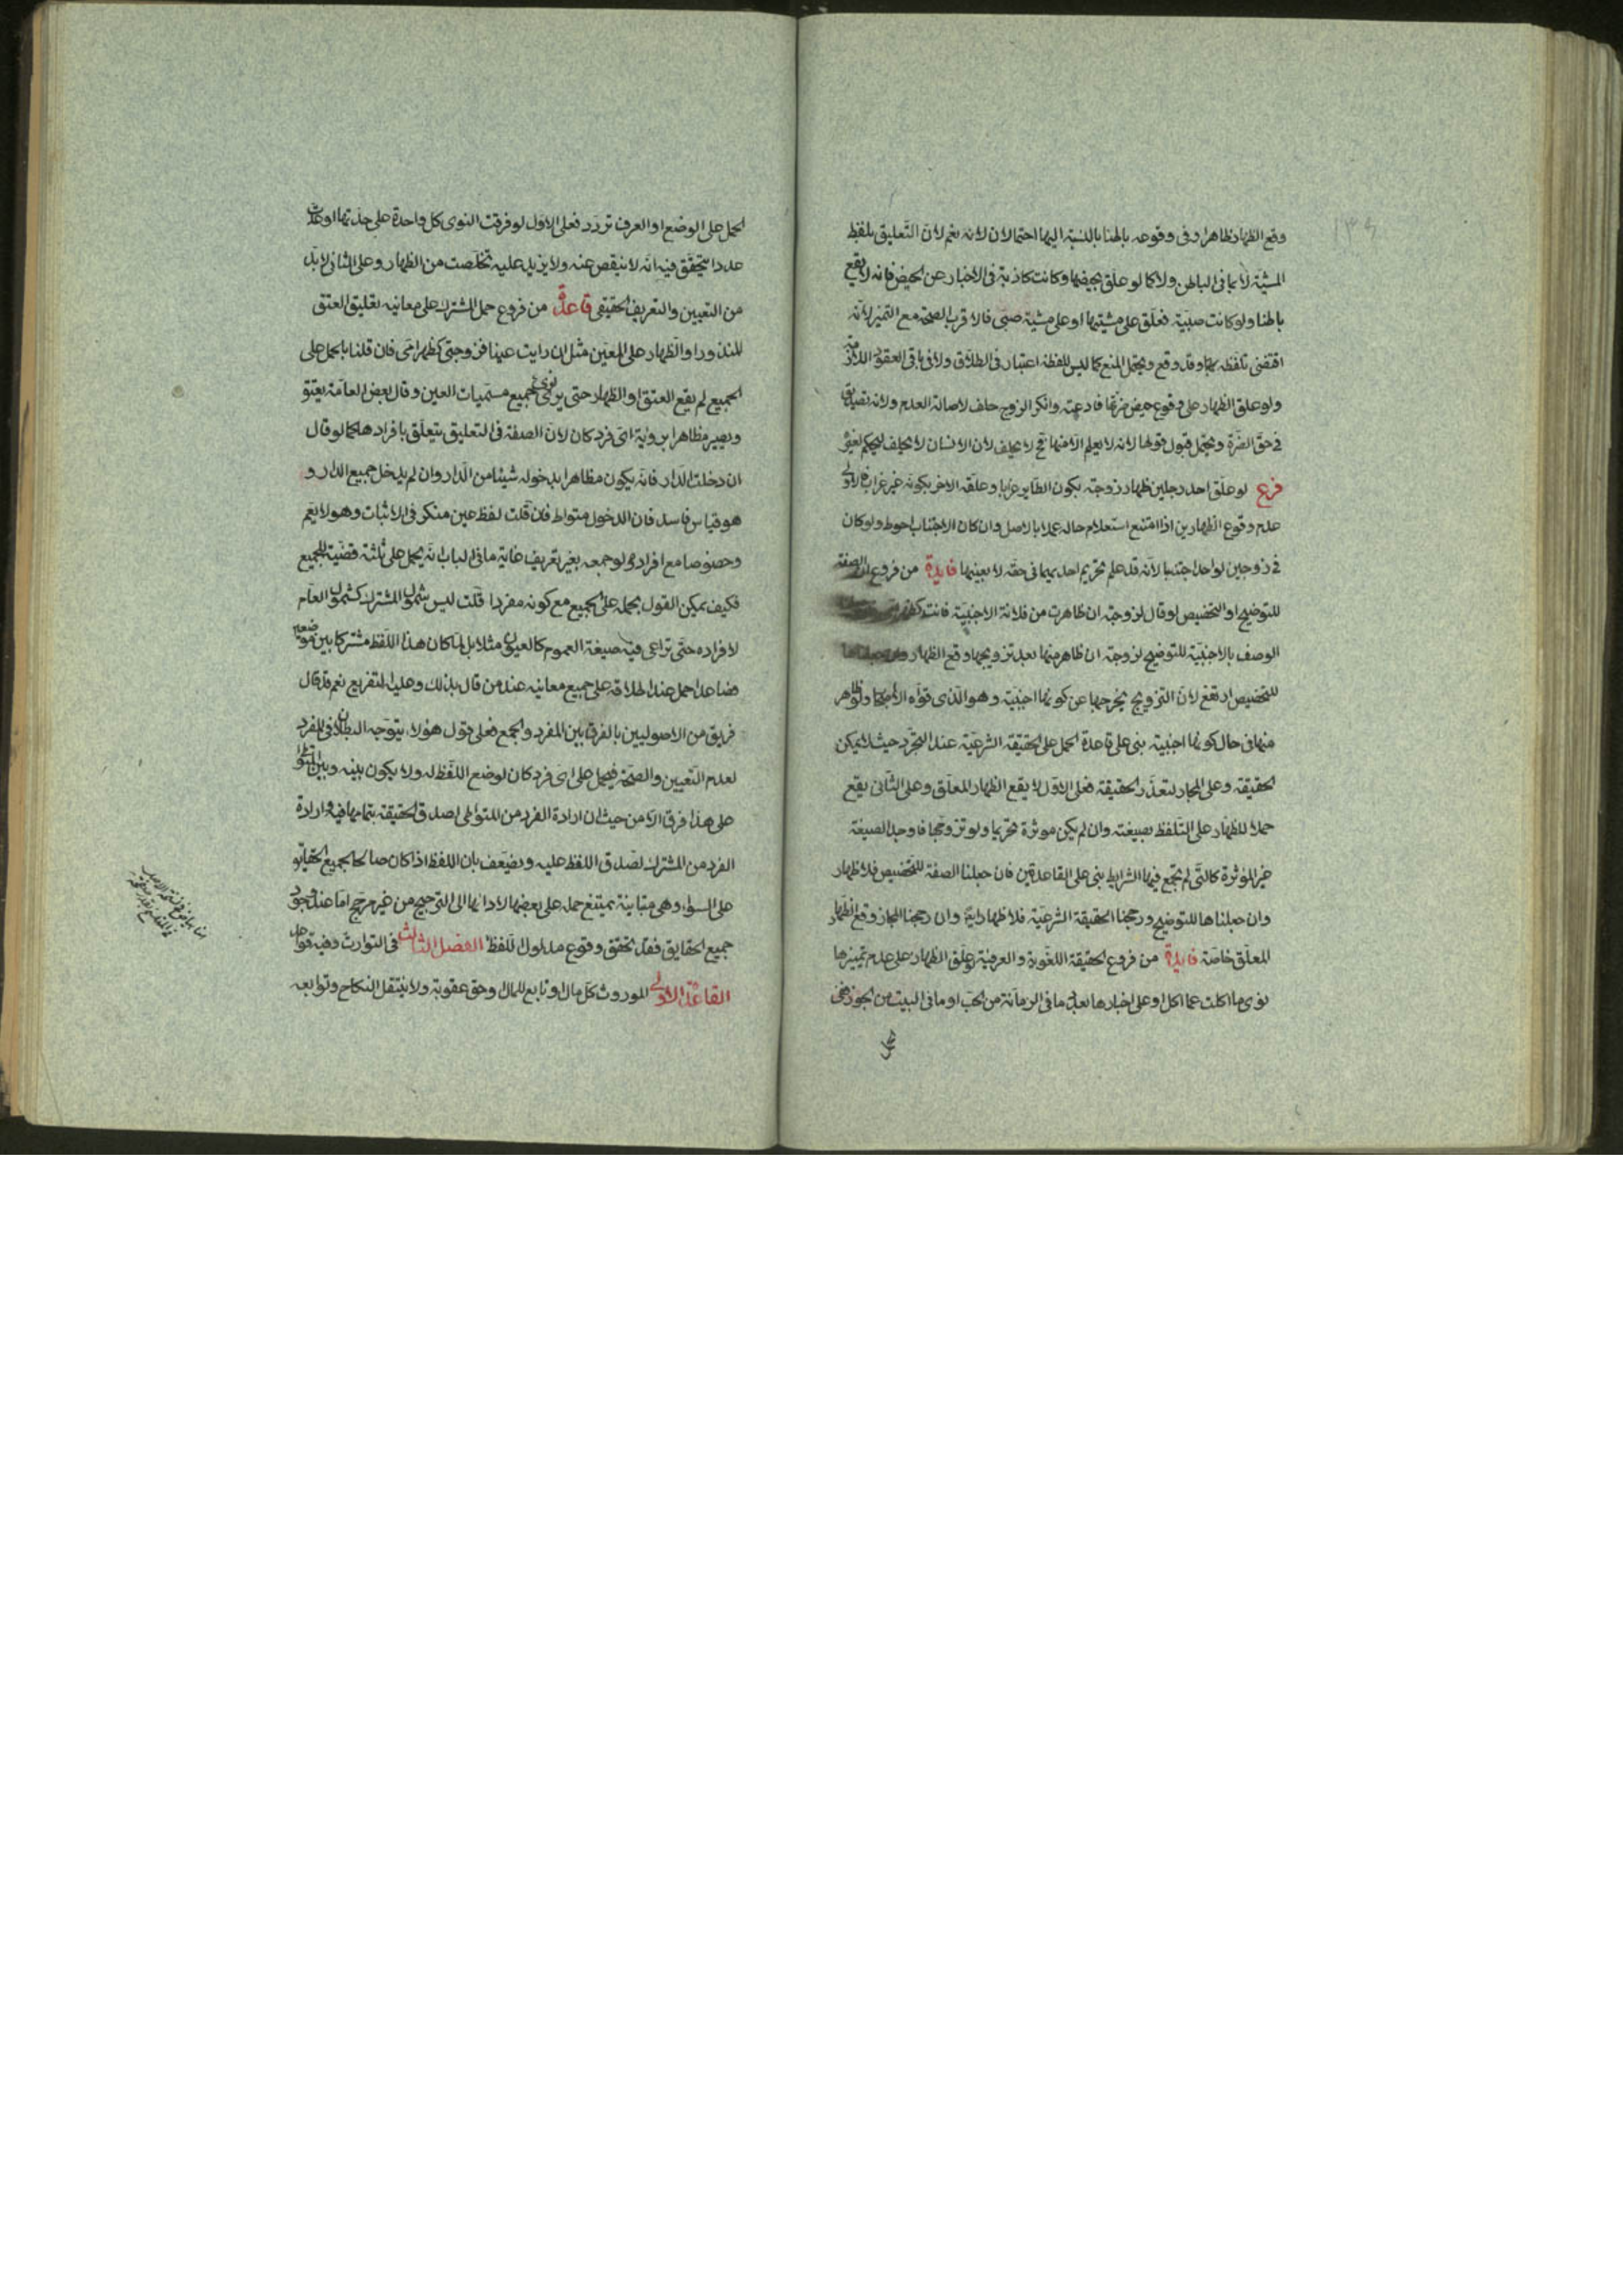 ١٣٤
وقع الظهار ظاهرا وفى وقوعه باطنا بالنسبة اليها احتمالان لانه نعم لان التعليق بلفظ
المشية لا بما فى الباطن ولا كما لو علق بحيضها وكانت كاذبة فى الاخبار عن الحيض فانه لا يقع
باطنا ولو كانت صبية فعلق على مشيتها او على مشية صبى فالاقرب الصحة مع التميز لانه
اقتضى تلفظه بها وقد وقع ويحتمل المنع كما ليس للفظه اعتبار فى الطلاق ولا فى باقى العقود اللازمة
ولو علق الظهار على وقوع حيض ضرتها فادعته وانكر الزوج حلف لاصالة العدم ولانه تصديق
فى حق الضرة ويحتمل قبول قولها لانه لا يعلم الا منها فح لا يحلف لان الانسان لا يحلف ليحكم لغيره
فرع لو علق احد رجلين ظهار زوجته بكون الطاير غرابا وعلقه الاخر بكونه غير غراب فالاولى
عدم وقوع الظهارين اذا امتنع استعلام حاله عملا بالاصل وان كان الاجتناب احوط ولو كان
فى زوجين لواحد اجتنبا لانه قد علم تحريم احديهما فى حقه لا بعينها فايدة من فروع ان الصفة
للتوضيح او التخصيص لو قال لزوجته ان ظاهرت من فلانة الاجنبية فانت كظهر
الوصف بالاجنبية للتوضيح لزوجته ان ظاهر منها بعد تزويجها وقع الظهار وان جعلناها
للتخصيص ارتفع لان التزويج يخرجها عن كونها اجنبية وهو الذى قواه الاصحاب ولو ظاهر
منها فى حال كونها اجنبية بنى على قاعدة الحمل على الحقيقة الشرعية عند التجرد حيث لا يمكن
الحقيقة وعلى المجاز لتعذر الحقيقة فعلى الاول لا يقع الظهار المعلق وعلى الثانى يقع
حملا للظهار على التلفظ بصيغته وان لم يكن موثرة تحريما ولو تزوجها فاوجد الصيغة
غير الموثرة كالتى لم تجمع فيها الشرايط بنى على القاعدتين فان جعلنا الصفة للتخصيص فلا ظهار
وان جعلناها للتوضيح ورجحنا الحقيقة الشرعية فلا ظهار ايضا وان رجحنا المجاز وقع الظهار
المعلق خاصة فايدة من فروع الحقيقة اللغوية والعرفية لو علق الظهار على عدم تميزها
نوى ما اكلت عما اكل او على اخبارها بعدد ما فى الرمانة من الحب او ما فى البيت من الجوز ففى
الحمل على الوضع او العرف تردد فعلى الاول لو فرقت النوى كل واحدة على حدتها او عدت
عددا يتحقق فيه انه لا ينقص عنه ولا يزيد عليه تخلصت من الظهار وعلى الثانى لا بد
من التعيين والتعريف الحقيقى قاعدة من فروع حمل المشترك على معانيه تعليق العتق
المنذور او الظهار على المعين مثل ان رايت عينا فزوجتى كظهر امى فان قلنا بالحمل على
الجميع لم يقع العتق او الظهار حتى يرى جميع مسميات العين وقال بعض العامة يعتق
ويصير مظاهرا بروئية اى فرد كان لان الصفة فى التعليق يتعلق بافرادها كما لو قال
ان دخلت الدار فانه يكون مظاهرا بدخوله شيئا من الدار وان لم يدخل جميع الدار و
هو قياس فاسد فان الدخول متواط فان قلت لفظ عين منكر فى الاثبات وهو لا يعم
وخصوصا مع افراده ولو جمعه بغير تعريف غاية ما فى الباب انه يحمل على ثلثة قضية للجميع
فكيف يمكن القول بحمله على الجميع مع كونه مفردا قلت ليس شمول المشترك كشمول العام
لافراده حتى تراعى فيه صيغة العموم كالعيون مثلا بل لما كان هذا اللفظ مشتركا بين موضعين
فصاعدا حمل عند اطلاقه على جميع معانيه عند من قال بذلك وعليه التفريع نعم قد قال
فريق من الاصوليين بالفرق بين المفرد والجمع فعلى قول هؤلاء يتوجه البطلان فى المفرد
لعدم التعيين والصحة فيحمل على اى فرد كان لوضع اللفظ له ولا يكون بينه وبين المتواطى
على هذا فرق الا من حيث ان ارادة الفرد من المتواطى لصدق الحقيقة بتمامها فيه وارادة
الفرد من المشترك لصدق اللفظ عليه ويضعف بان اللفظ اذا كان صالحا لجميع الحقايق
على السواء وهى متباينة يمتنع حمله على بعضها لادائها الى الترجيح من غير مرجح اما عند وجود
جميع الحقايق فقد تحقق وقوع مدلول اللفظ الفصل الثالث فى التوارث وفيه قواعد
القاعدة الاولى الموروث كل مال او تابع للمال وحق عقوبة ولا ينتقل النكاح وتوابعه